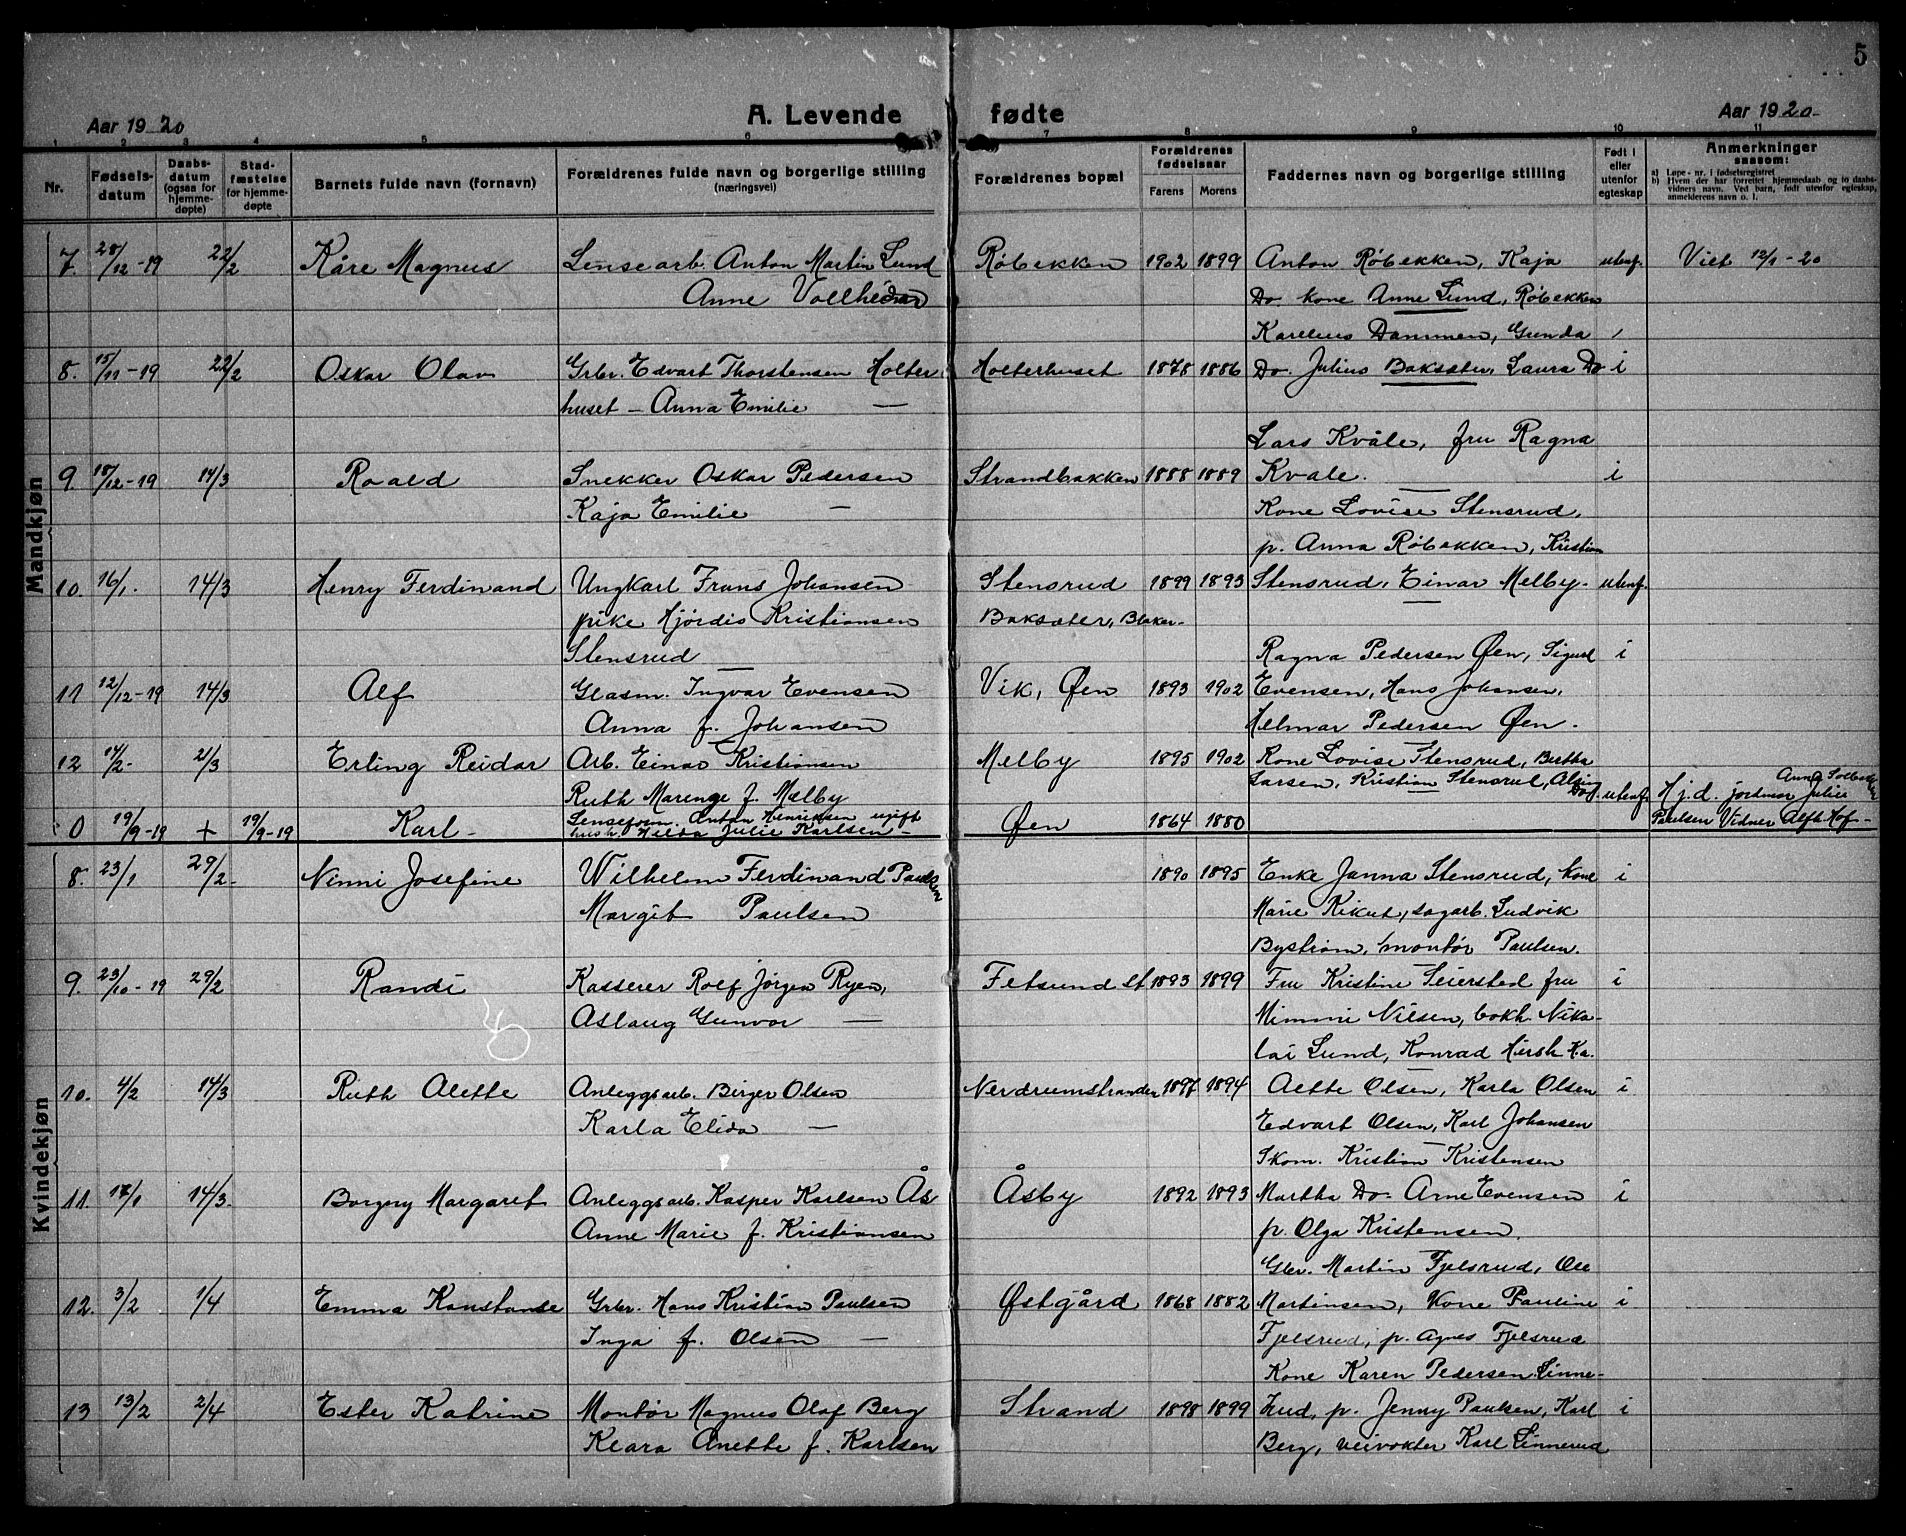 5
A. Levende fødte
Aar 1920
Aar 1920
1 2 3 4 5 6 7 8 9 10 11
Nr.
Fødselsdatum
Daabsdatum (ogsaa for hjemmedøpte)
Stadfæstelse for hjemmedøpte
Barnets fulde navn (fornavn)
Forældrenes fulde navn og borgerlige stilling (næringsvei)
Forældrenes bopæl
Forældrenes fødselsaar
Farens Morens
Faddernes navn og borgerlige stilling
Født i eller utenfor egteskap
Anmerkninger saasom:
a) Løpe-nr. i fødselsregistret
b) Hvem der har forrettet hjemmedaab og to daabsvidners navn. Ved barn, født utenfor egteskap, anmelderens navn o. l.
Mandkjøn
7. 28/12-19 22/2 Kåre Magnus Lensearb. Anton Martin Lund Røbekken 1902 1899 Anton Røbekken, Kaja utenf. Viet 12/1-20
Anne Vollheim Do. kone Anne Lund, Røbekken
Karelius Dammen, Gunda
8. 15/11-19 22/2 Oskar Olav Grbr. Edvart Thorstensen Holter Holterhuset 1878 1886 Do. Julius Baksæter, Laura Do i
huset - Anna Emilie —
Lars Kvåle, fru Ragna
9. 18/12-19 14/3 Roald Snekker Oskar Pedersen Strandbakken 1888 1889 Kvale. i
Kaja Emilie — Kone Lovise Stensrud,
p. Anna Røbekken, Kristian
10. 16/1. 14/3 Henry Ferdinand Ungkarl Frans Johansen Stensrud 1899 1893 Stensrud, Einar Melby. utenf.
pike Hjördis Kristiansen Baksæter, Blaker.
Stensrud Ragna Pedersen Øen, Sigurd i
11 12/12-19 14/3 Alf Glasm. Ingvar Evensen Vik, Øen 1893 1902 Evensen, Hans Johansen,
Anna f. Johansen Helmar Pedersen Øen.
12 14/2- 21/3 Erling Reidar Arb. Einar Kristiansen Melby 1895 1902 Kone Lovise Stensrud, Bertha
Ruth Marenge f. Melby Larsen, Kristian Stensrud, Do. utenf. H.j.d. jordmor Julie
0 19/9-19 + 19/9-19 Karl - Lenseform. Anton Henriksen ugift Øen 1864 1880 Paulsen Vidner Hof-
hush. Hilda Julie Karlsen -
Kvindekjøn
8. 23/1 29/2- Ninni Josefine Wilhelm Ferdinand Paulsen 1890 1895 Enke Janna Stensrud, Kone i
Margit Paulsen Marie Rikut, sagarb. Ludvik
Bystrøm, montør Paulsen.
9. 23/10-19 29/2 Randi Kasserer Rolf Jørgen Ryen, Fetsund st 1893 1899 Fru Kristine Seiersted fru i
Aslaug Gunvor — Mimmi Nilsen, bokh. Niko-
lai Lund, Konrad Hirsh Ka.
10. 4/2 14/3 Ruth Alette Anleggsarb. Birger Olsen Nerdrumstranden 1897 1894 Alette Olsen, Karla Olsen i
Karla Elida — Edvart Olsen, Karl Johansen
Skom. Kristian Kristensen
11. 17/1 14/3. Borgny Margaret Anleggsarb. Kasper Karlsen Ås Åsby 1892 1893 Martha Do. Arne Evensen i
Anne Marie f. Kristiansen p. Olga Kristensen.
Gbr. Martin Fjelsrud, Ole
12. 3/2 1/4 Emma Konstanse Grbr. Hans Kristian Paulsen Østgård 1868 1882 Martinsen, Kone Pauline i
Inga f. Olsen — Fjelsrud, p. Agnes Fjelsrud
Kone Karen Pedersen Linne-
13 13/2 2/4 Ester Katrine Montør Magnus Olaf Berg Strand 1898 1899 rud, p. Jenny Paulsen, Karl i
Klara Anette f. Karlsen Berg, veivokter Karl Linnerud